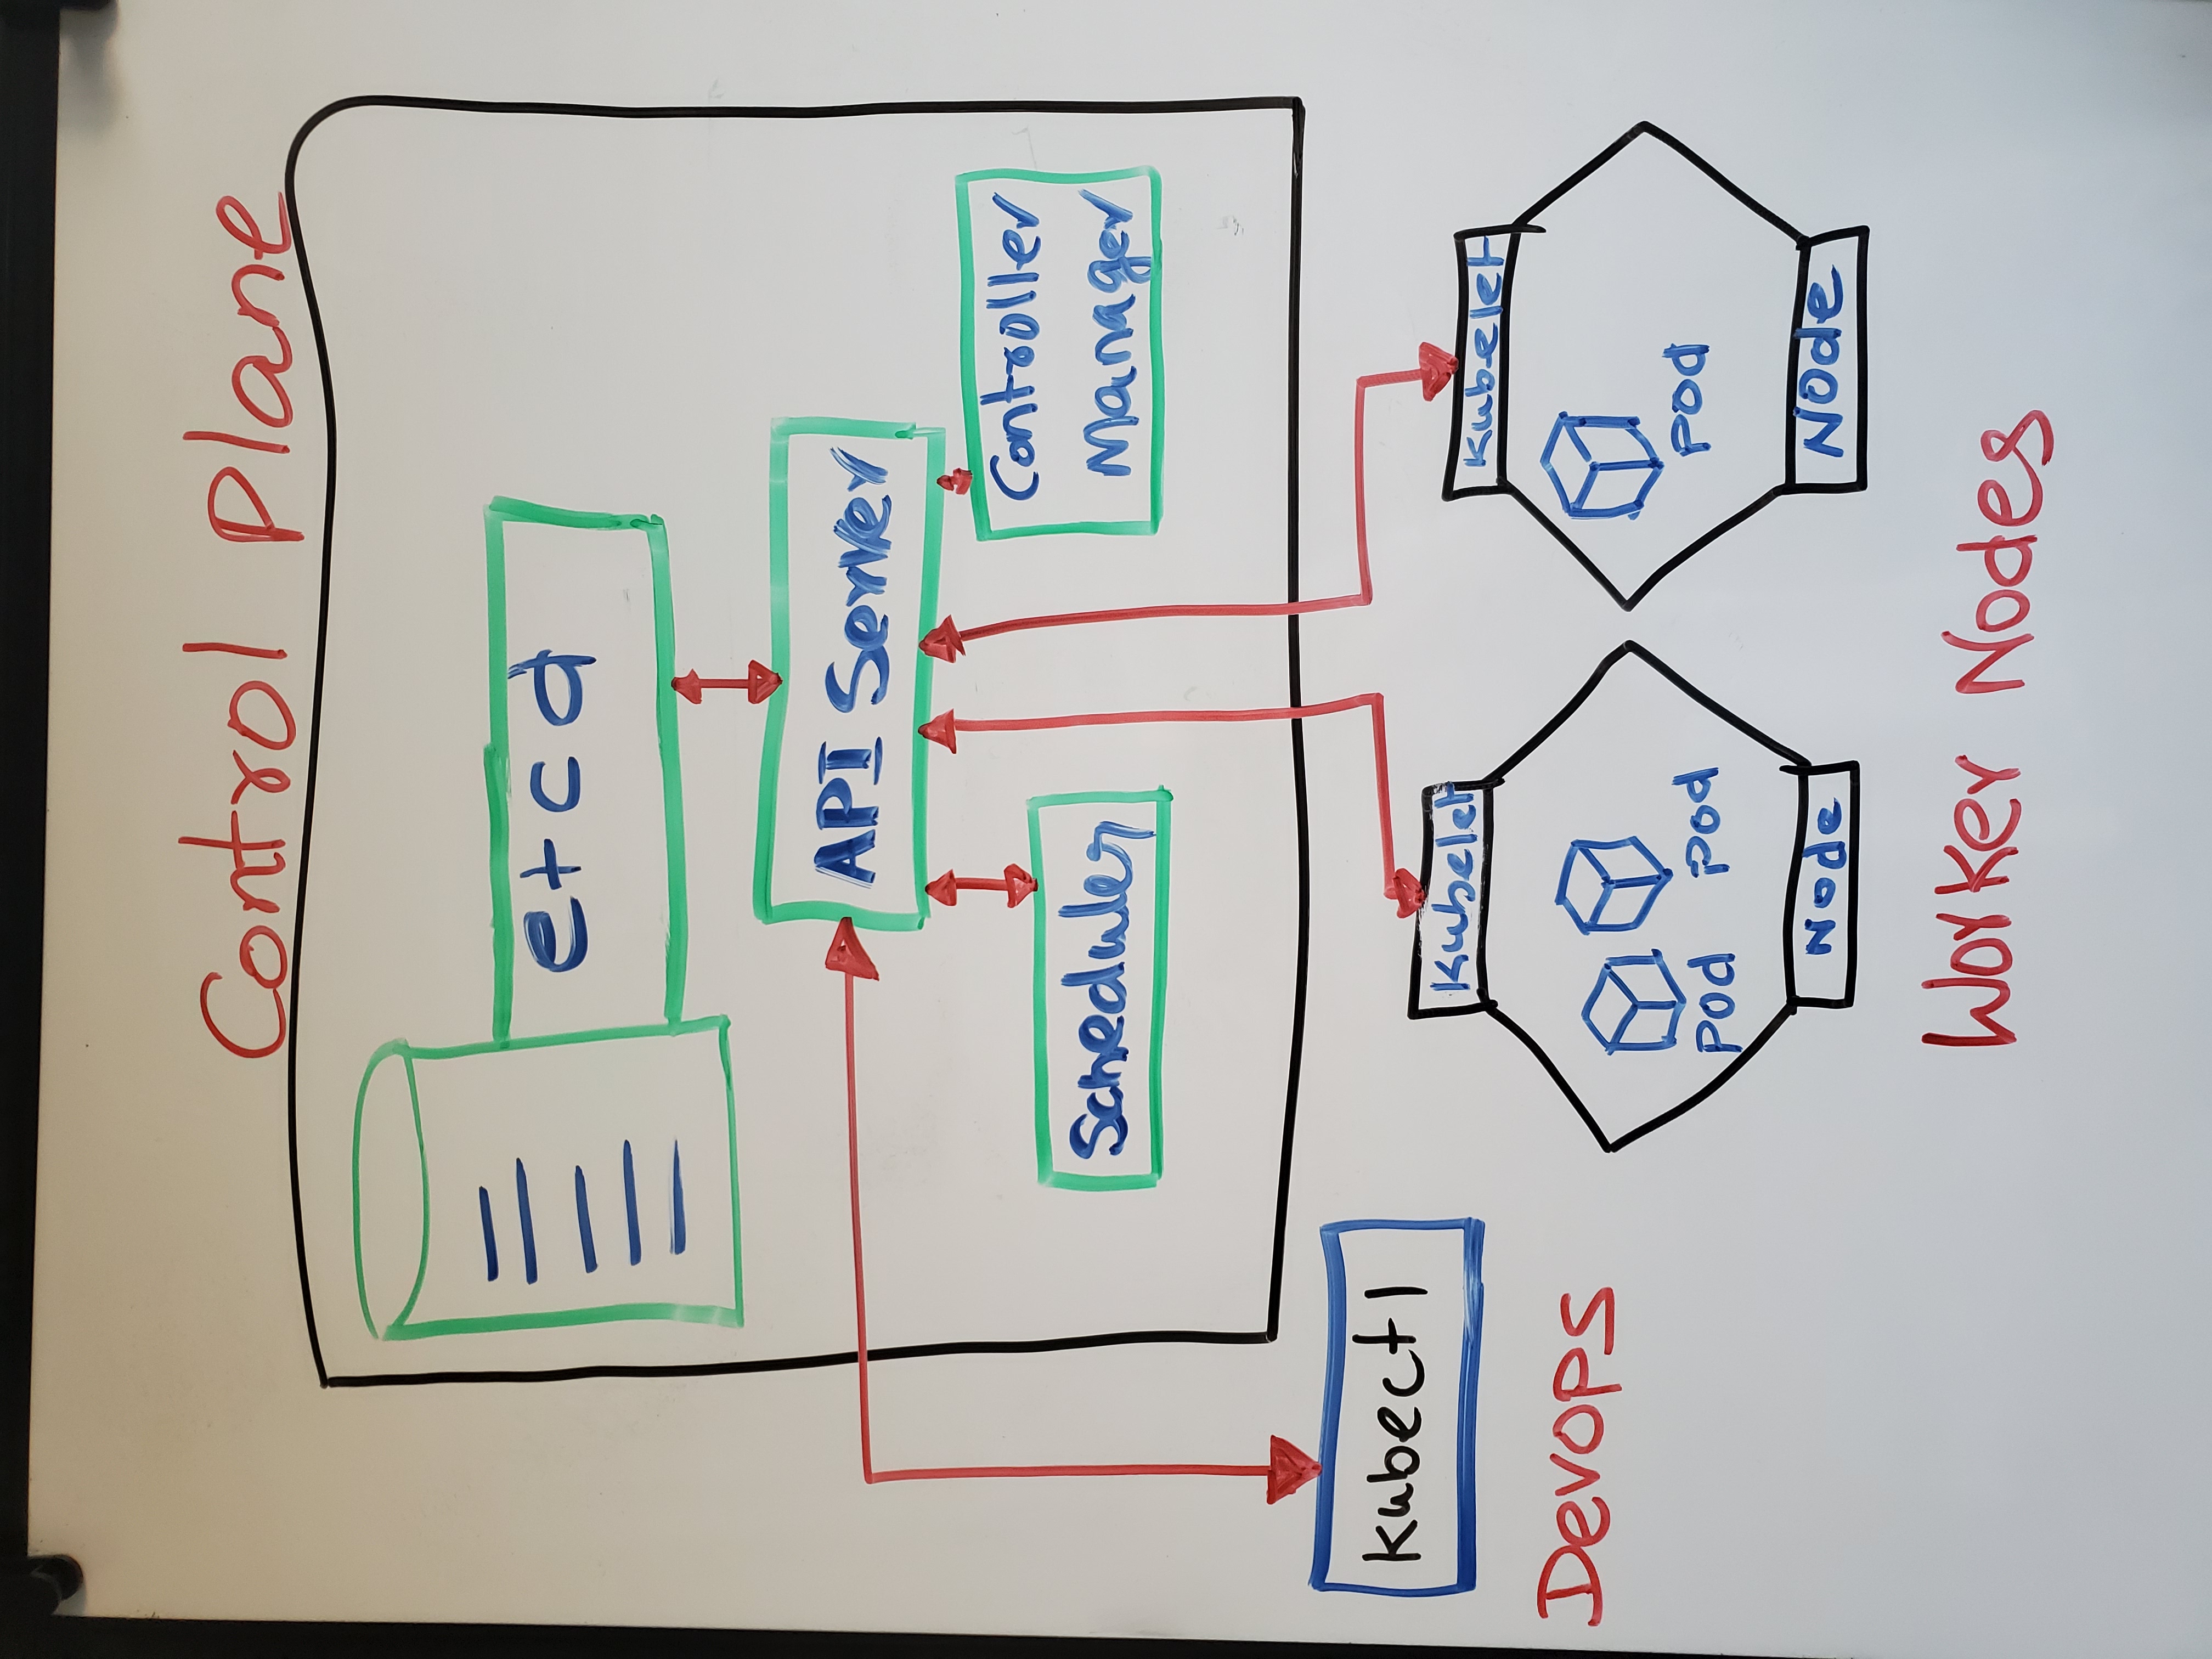 Control Plane
etcd
API Server
Scheduler
Controller
Manager
Kubectl
Devops
Kubelet
Pod Pod
Node
Kubelet
Pod
Node
Worker Nodes